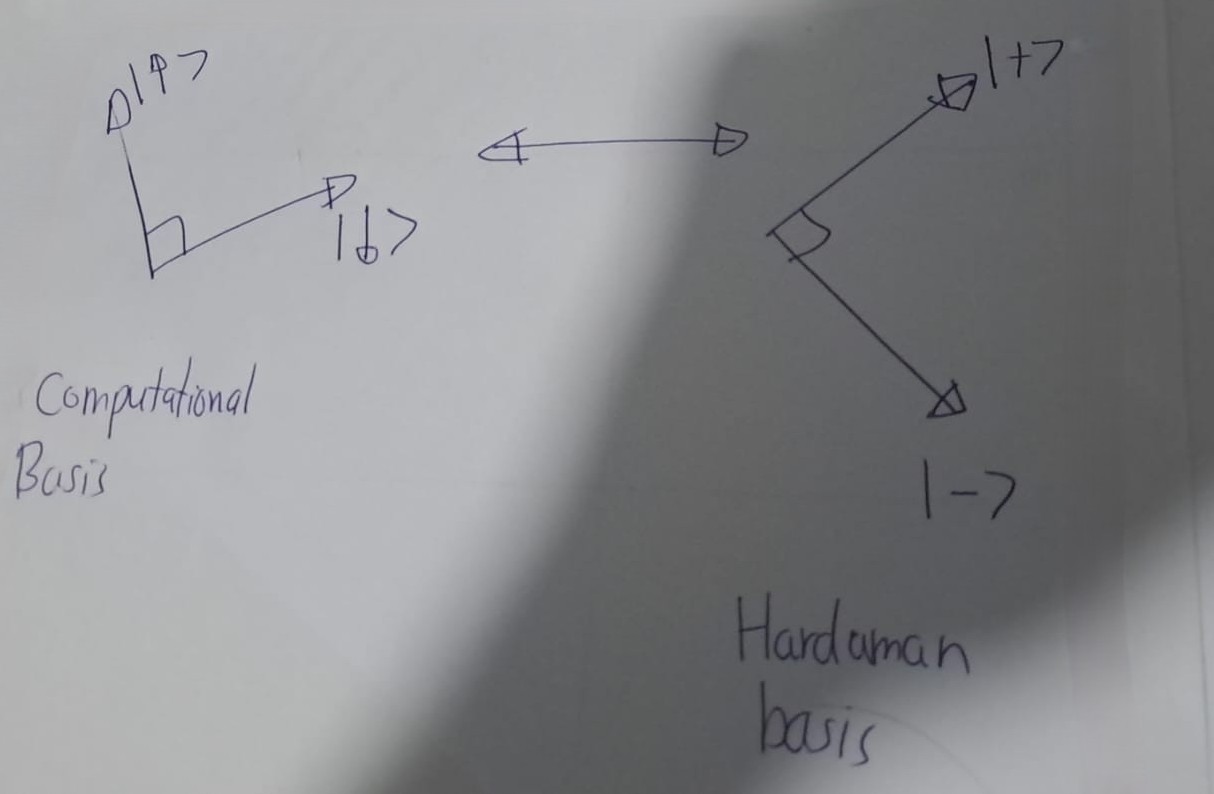 |↑>
|↓>
Computational
Basis
|+>
|->
Hardaman
basis